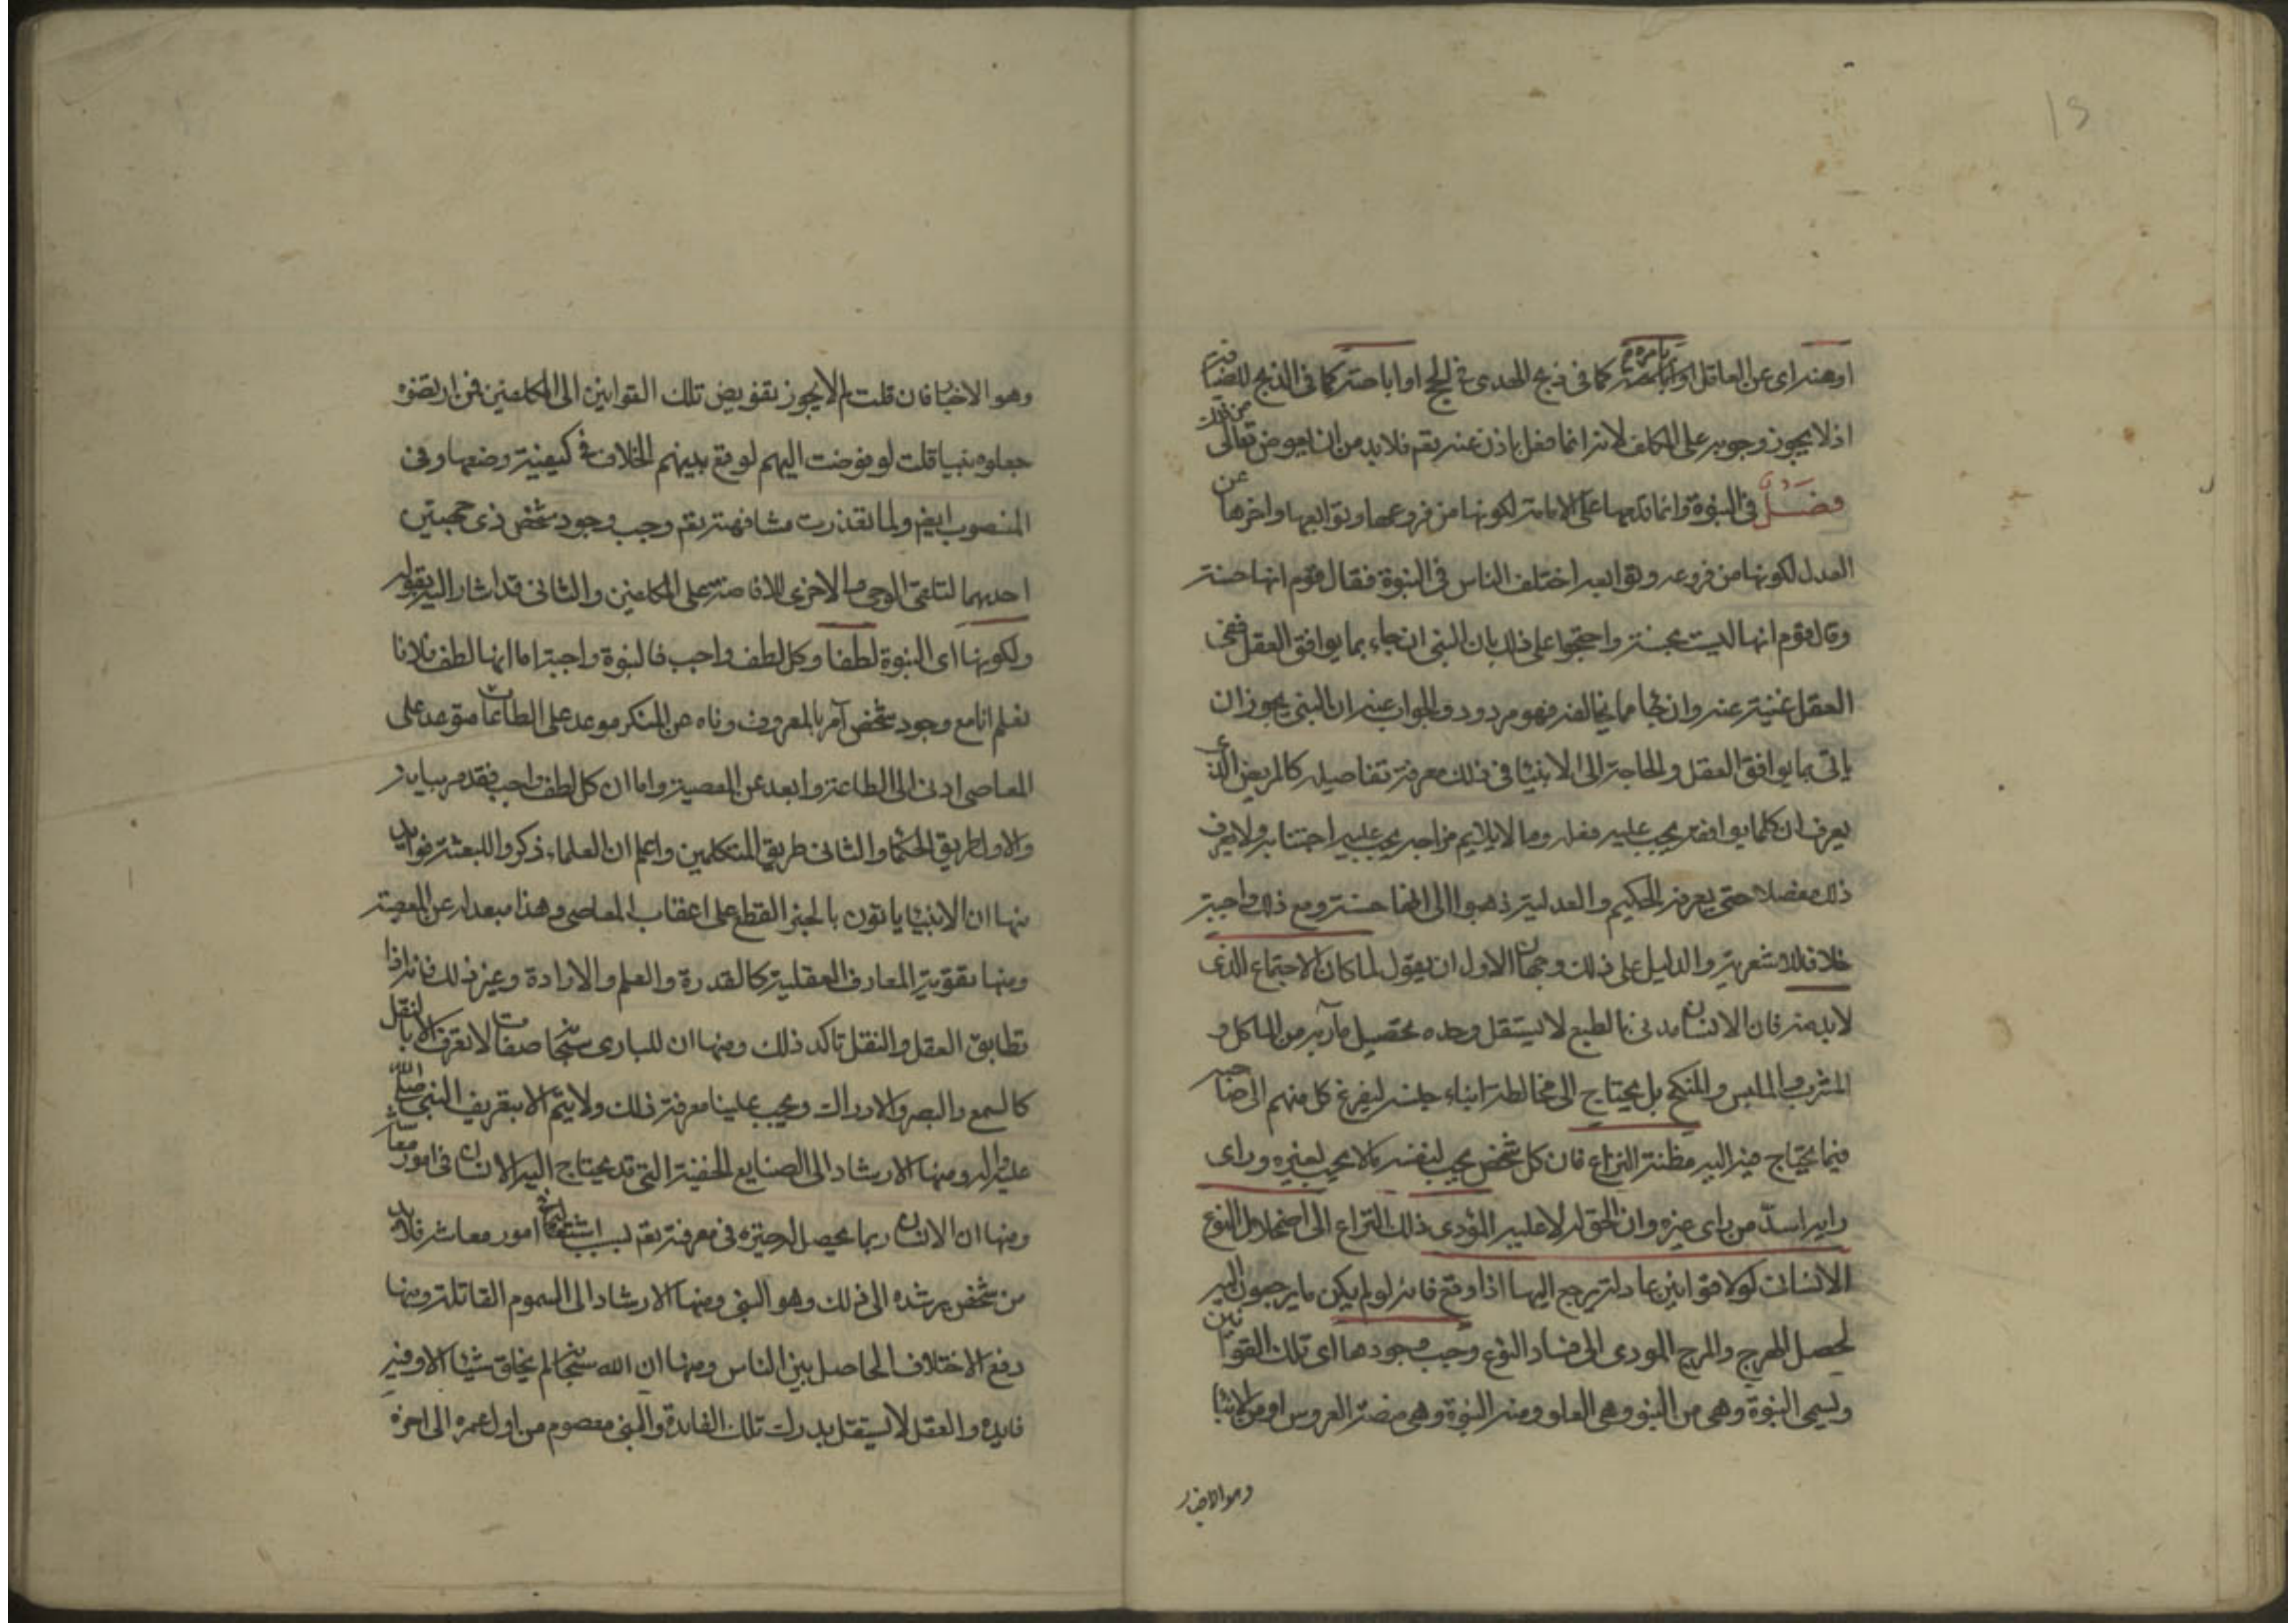 او عنه اى عن العاقل او بامره كما فى ذبح الهدى فى الحج او اباحته كما فى الذبح للضيافة
اذ لا يجوز وجوبه على المكلف لانه انما فعل باذن عنه تعم فلا بد من ان العوض من ذلك تعالى
فصل فى النبوة وانما قدمها على الامامة لكونها من فروعها وتوابعها واخرها عن
العدل لكونها من فروعه وتوابعه اختلف الناس فى النبوة فقال قوم انها حسنة
وقال قوم انها ليست بحسنة واحتجوا على ذلك بان النبى ان جاء بما يوافق العقل ففى
العقل غنية عنه وان جاء بما يخالفه فهو مردود والجواب عنه ان النبى يجوز ان
ياتى بما يوافق العقل والحاجة الى الانبيا فى ذلك معرفة تفاصيله كالمريض الذى
يعرف ان كلما يوافقه يجب عليه فعله وما لا يلايم مزاجه يجب عليه اجتنابه ولا يعرف
ذلك مفصلا حتى يعرفه الحكيم والعدلية ذهبوا الى انها حسنة ومع ذلك واجبة
خلافا للاشعرية والدليل على ذلك وجهان الاول ان يقول لما كان الاجتماع الذى
لا بد منه فان الانسان مدنى بالطبع لا يستقل وحده بتحصيل مآربه من الماكل و
المشرب والملبس والمنكح بل يحتاج الى مخالطة ابناء جنسه ليفرغ كل منهم الى صاحبه
فيما يحتاج فيه اليه مظنة النزاع فان كل شخص يحب لنفسه ما لا يحب لغيره وراى
رايه اسدّ من راى غيره وان الحق له لا عليه المؤدى ذلك النزاع الى اضمحلال النوع
الانسانى لولا قوانين عادلة يرجع اليها اذا وقع فانه لو لم يكن ما يرجعون اليه
لحصل الهرج والمرج المودى الى فساد النوع وجب وجودها اى تلك القوانين
وليسمى النبوة وهى من النبو وهى العلو ومنه النبوة وهى منصة العروس او من الانبا
وهو الاخبار
وهو الاخبار فان قلت لم لا يجوز تفويض تلك القوانين الى المكلفين فمن ارتضوه
جعلوه نبيا قلت لو فوضت اليهم لوقع بينهم الخلاف فى كيفية وضعها وفى
المنصوب ايضا ولما تعذرت مشافهته تعم وجب وجود شخص ذى جهتين
احديهما لتلقى الوحى والاخرى للافاضة على المكلفين والثانى قد اشار اليه بقوله
ولكونها اى النبوة لطفا وكل لطف واجب فالنبوة واجبة اما انها لطف فلانا
نعلم انا مع وجود شخص آمر بالمعروف وناه عن المنكر موعد على الطاعات متوعد على
المعاصى ادنى الى الطاعة وابعد عن المعصية واما ان كل لطف واجب فقد مر بيانه
والاول طريق الحكما والثانى طريق المتكلمين واعلم ان العلماء ذكروا للبعثة فوايد
منها ان الانبيا ياتون بالجزم القطع على عقاب المعاصى وهذا مبعد له عن المعصية
ومنها تقوية المعارف العقلية كالقدرة والعلم والارادة وغير ذلك فانه اذا
تطابق العقل والنقل تاكد ذلك ومنها ان للبارى سبحانه صفات لا تعرف الا بالنقل
كالسمع والبصر والادراك ويجب علينا معرفة ذلك ولا يتم الا بتعريف النبى صلى الله
عليه واله ومنها الارشاد الى الصنايع الخفية التى قد يحتاج اليه الانسان فى امور معاشه
ومنها ان الانسان ربما يحصل له حيرة فى معرفة تعم لسبب اشتغاله امور معاشه فلا بد
من شخص يرشده الى ذلك وهو النبى ومنها الارشاد الى السموم القاتلة ومنها
دفع الاختلاف الحاصل بين الناس ومنها ان الله سبحانه لم يخلق شيئا الا وفيه
فايدة والعقل لا يستقل بدرك تلك الفايدة والنبى معصوم من اول عمره الى اخره